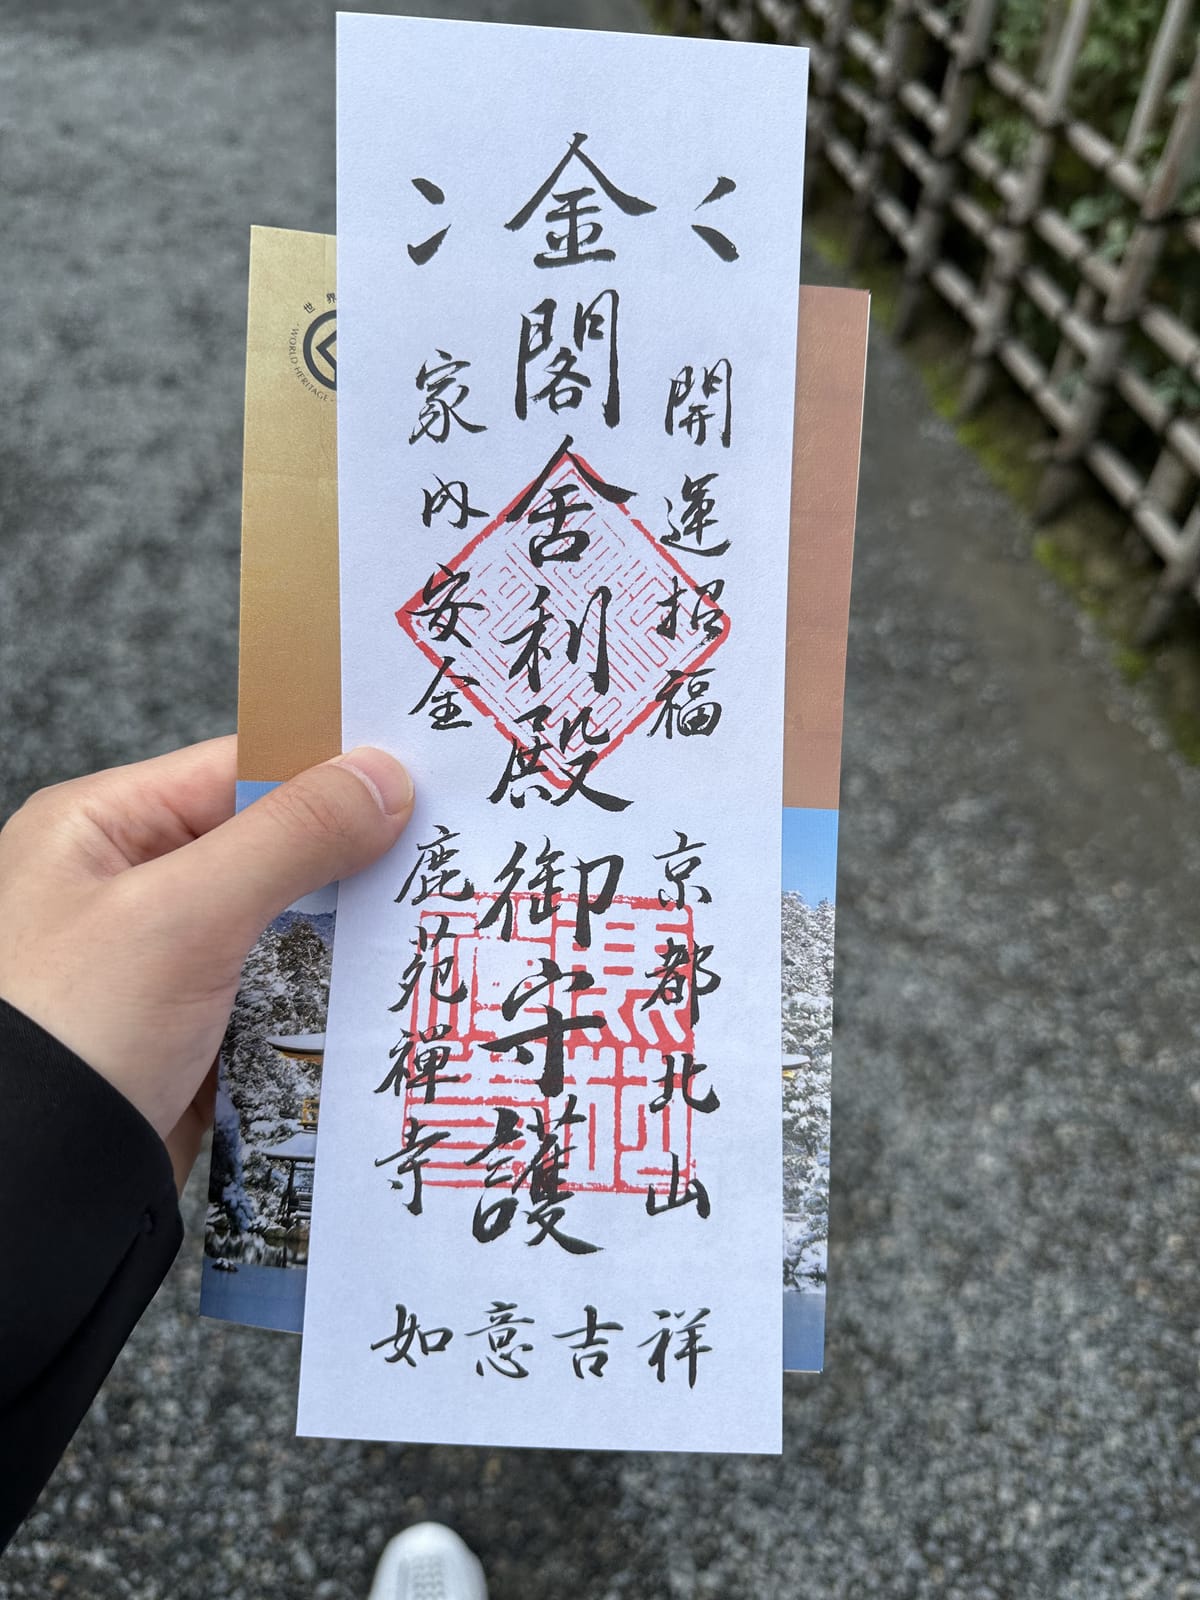 開運招福
京都北山
金閣舎利殿
御守護
家内安全
鹿苑禅寺
如意吉祥
世界
WORLD HERITAGE